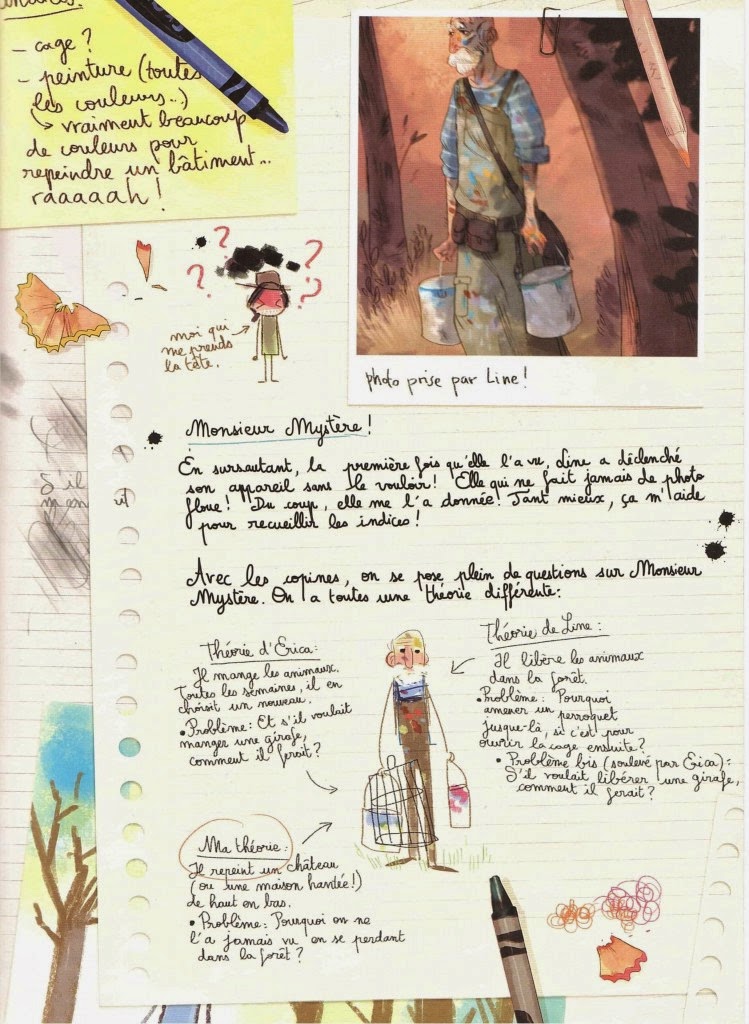 - cage ?
- peinture (toutes
les couleurs...)
↳ vraiment beaucoup
de couleurs pour
repeindre un bâtiment...
raaaaah !
? ? ? ?
moi qui
me prends
la tête.
photo prise par Line !
Monsieur Mystère !
En sursautant, la première fois qu'elle l'a vu, Line a déclenché
son appareil sans le vouloir ! Elle qui ne fait jamais de photo
floue ! Du coup, elle me l'a donnée ! Tant mieux, ça m'aide
pour recueillir les indices !
S'il
Avec les copines, on se pose plein de questions sur Monsieur
Mystère. On a toutes une théorie différente :
Théorie d'Erica :
Il mange les animaux.
Toutes les semaines, il en
choisit un nouveau.
• Problème : Et s'il voulait
manger une girafe,
comment il ferait ?
Théorie de Line :
Il libère les animaux
dans la forêt.
• Problème : Pourquoi
amener un perroquet
jusque-là, si c'est pour
ouvrir la cage ensuite ?
• Problème bis (soulevé par Erica) :
S'il voulait libérer une girafe,
comment il ferait ?
Ma théorie :
Il repeint un château
(ou une maison hantée !)
de haut en bas.
• Problème : Pourquoi on ne
l'a jamais vu en se perdant
dans la forêt ?